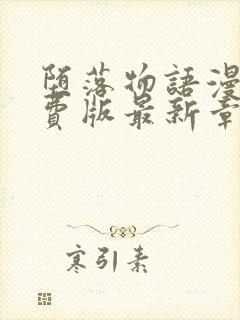 堕落物語漫
费版最新章
寒引素